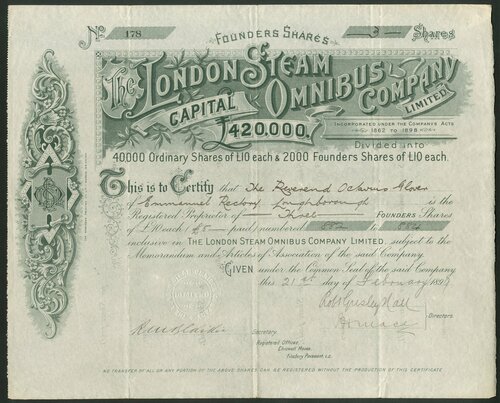 No 178 FOUNDERS SHARES 3 Shares
The LONDON STEAM OMNIBUS COMPANY LIMITED.
CAPITAL £420,000.
INCORPORATED UNDER THE COMPANIES ACTS 1862 TO 1898
Divided into
40000 Ordinary Shares of £10 each & 2000 Founders Shares of £10 each.
This is to Certify that The Reverend Octavius Glover
of Emmanuel Rectory Loughborough is the
Registered Proprietor of Three FOUNDERS Shares
of £10 each £5 paid numbered 882 to 884
inclusive in THE LONDON STEAM OMNIBUS COMPANY LIMITED. subject to the
Memorandum and Articles of Association of the said Company
GIVEN under the Common Seal of the said Company
this 21st day of February 1899
Directors.
Secretary.
Registered Offices,
Finsbury Pavement, E.C.
NO TRANSFER OF ALL OR ANY PORTION OF THE ABOVE SHARES CAN BE REGISTERED WITHOUT THE PRODUCTION OF THIS CERTIFICATE